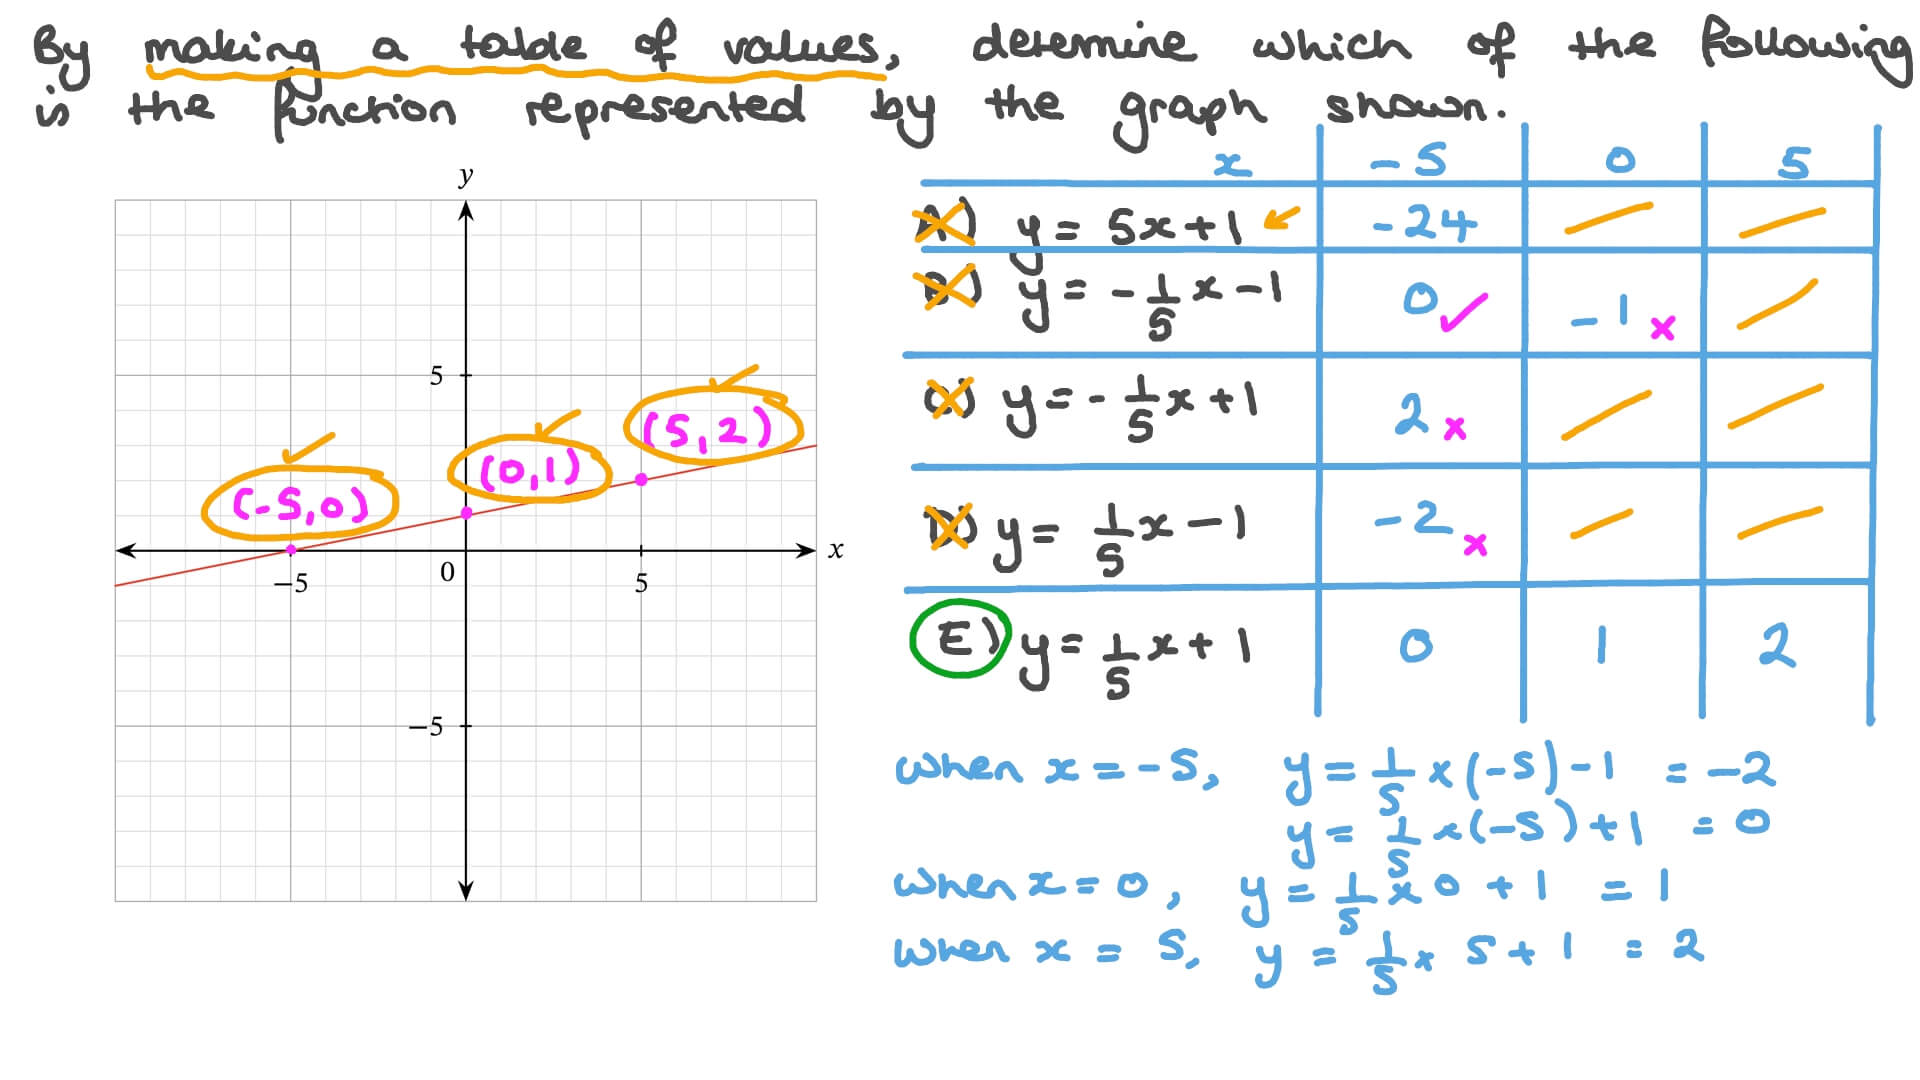 By making a table of values, determine which of the following
is the function represented by the graph shown.
x -5 0 5
A) y = 5x+1 -24
B) y = -1/5 x -1 0 ✓ -1 x
C) y = -1/5 x +1 2 x
D) y = 1/5 x -1 -2 x
E) y = 1/5 x + 1 0 1 2
y
5
(-5,0) (0,1) (5,2)
x
−5 0 5
−5
when x = -5, y = 1/5 x (-5) -1 = -2
y = 1/5 x (-5) +1 = 0
when x = 0, y = 1/5 x 0 + 1 = 1
when x = 5, y = 1/5 x 5 + 1 = 2